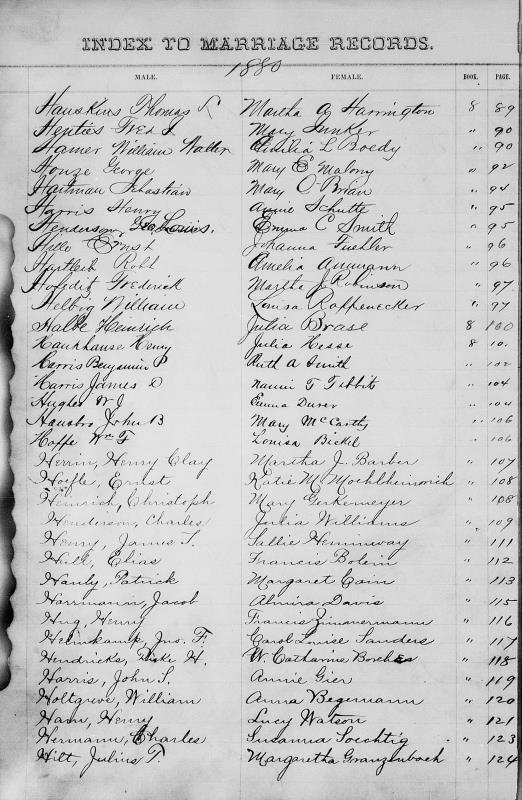 INDEX TO MARRIAGE RECORDS.
1880
MALE. FEMALE. BOOK. PAGE.
Hauskins Thomas Martha A Harrington 8 89
Henties Fred J Mary Junker " 90
Hamer William Walter Amilia L Boedy " 90
Houze George Mary E Malony " 92
Hartman Sebastian Mary O Brian " 94
Harris Henry Annie Schutte " 95
Henderson Geo Louis. Emma C Smith " 95
Hille Ernst Johanna Fiehler " 96
Hartleib Robt Amelia Aumann " 96
Hofedit Frederick Martha J Robinson " 97
Helbig William Louisa Rappenecker " 97
Halbe Heinrich Julia Brase 8 100
Haukhause Henry Julia Hesse 8 10.
Harris Benjamin P Ruth A Smith " 102
Harris James D Nannie T Tibbits " 104
Hughes W J Emma Durer " 104
Haustro John B Mary McCarthy " 106
Hoppe Wm F Louisa Bickel " 106
Herrin, Henry Clay Martha J. Barber " 107
Hoefle, Ernst Katie M. " 108
Heinrich, Christoph Mary Gerkemeyer " 108
Henderson, Charles Julia Williams " 109
Henry, James T. Sallie Heminway " 111
Hill, Elias Francis Bolein " 112
Hanly, Patrick Margaret Cain " 113
Harrmann, Jacob Almira Davis " 115
Hug, Henry Francis Zimmermann " 116
Helmkamp, Jno. F. Carol Louise Sanders " 117
Hendricks, H. W. Catharine Borches " 118
Harris, John S. Annie Gier " 119
Holtgreve, William Anna Begemann " 120
Ham, Henry Lucy Watson " 121
Hermann, Charles Susanna Soechtig " 123
Hilt, Julius T. Margaretha Granzenbach " 124